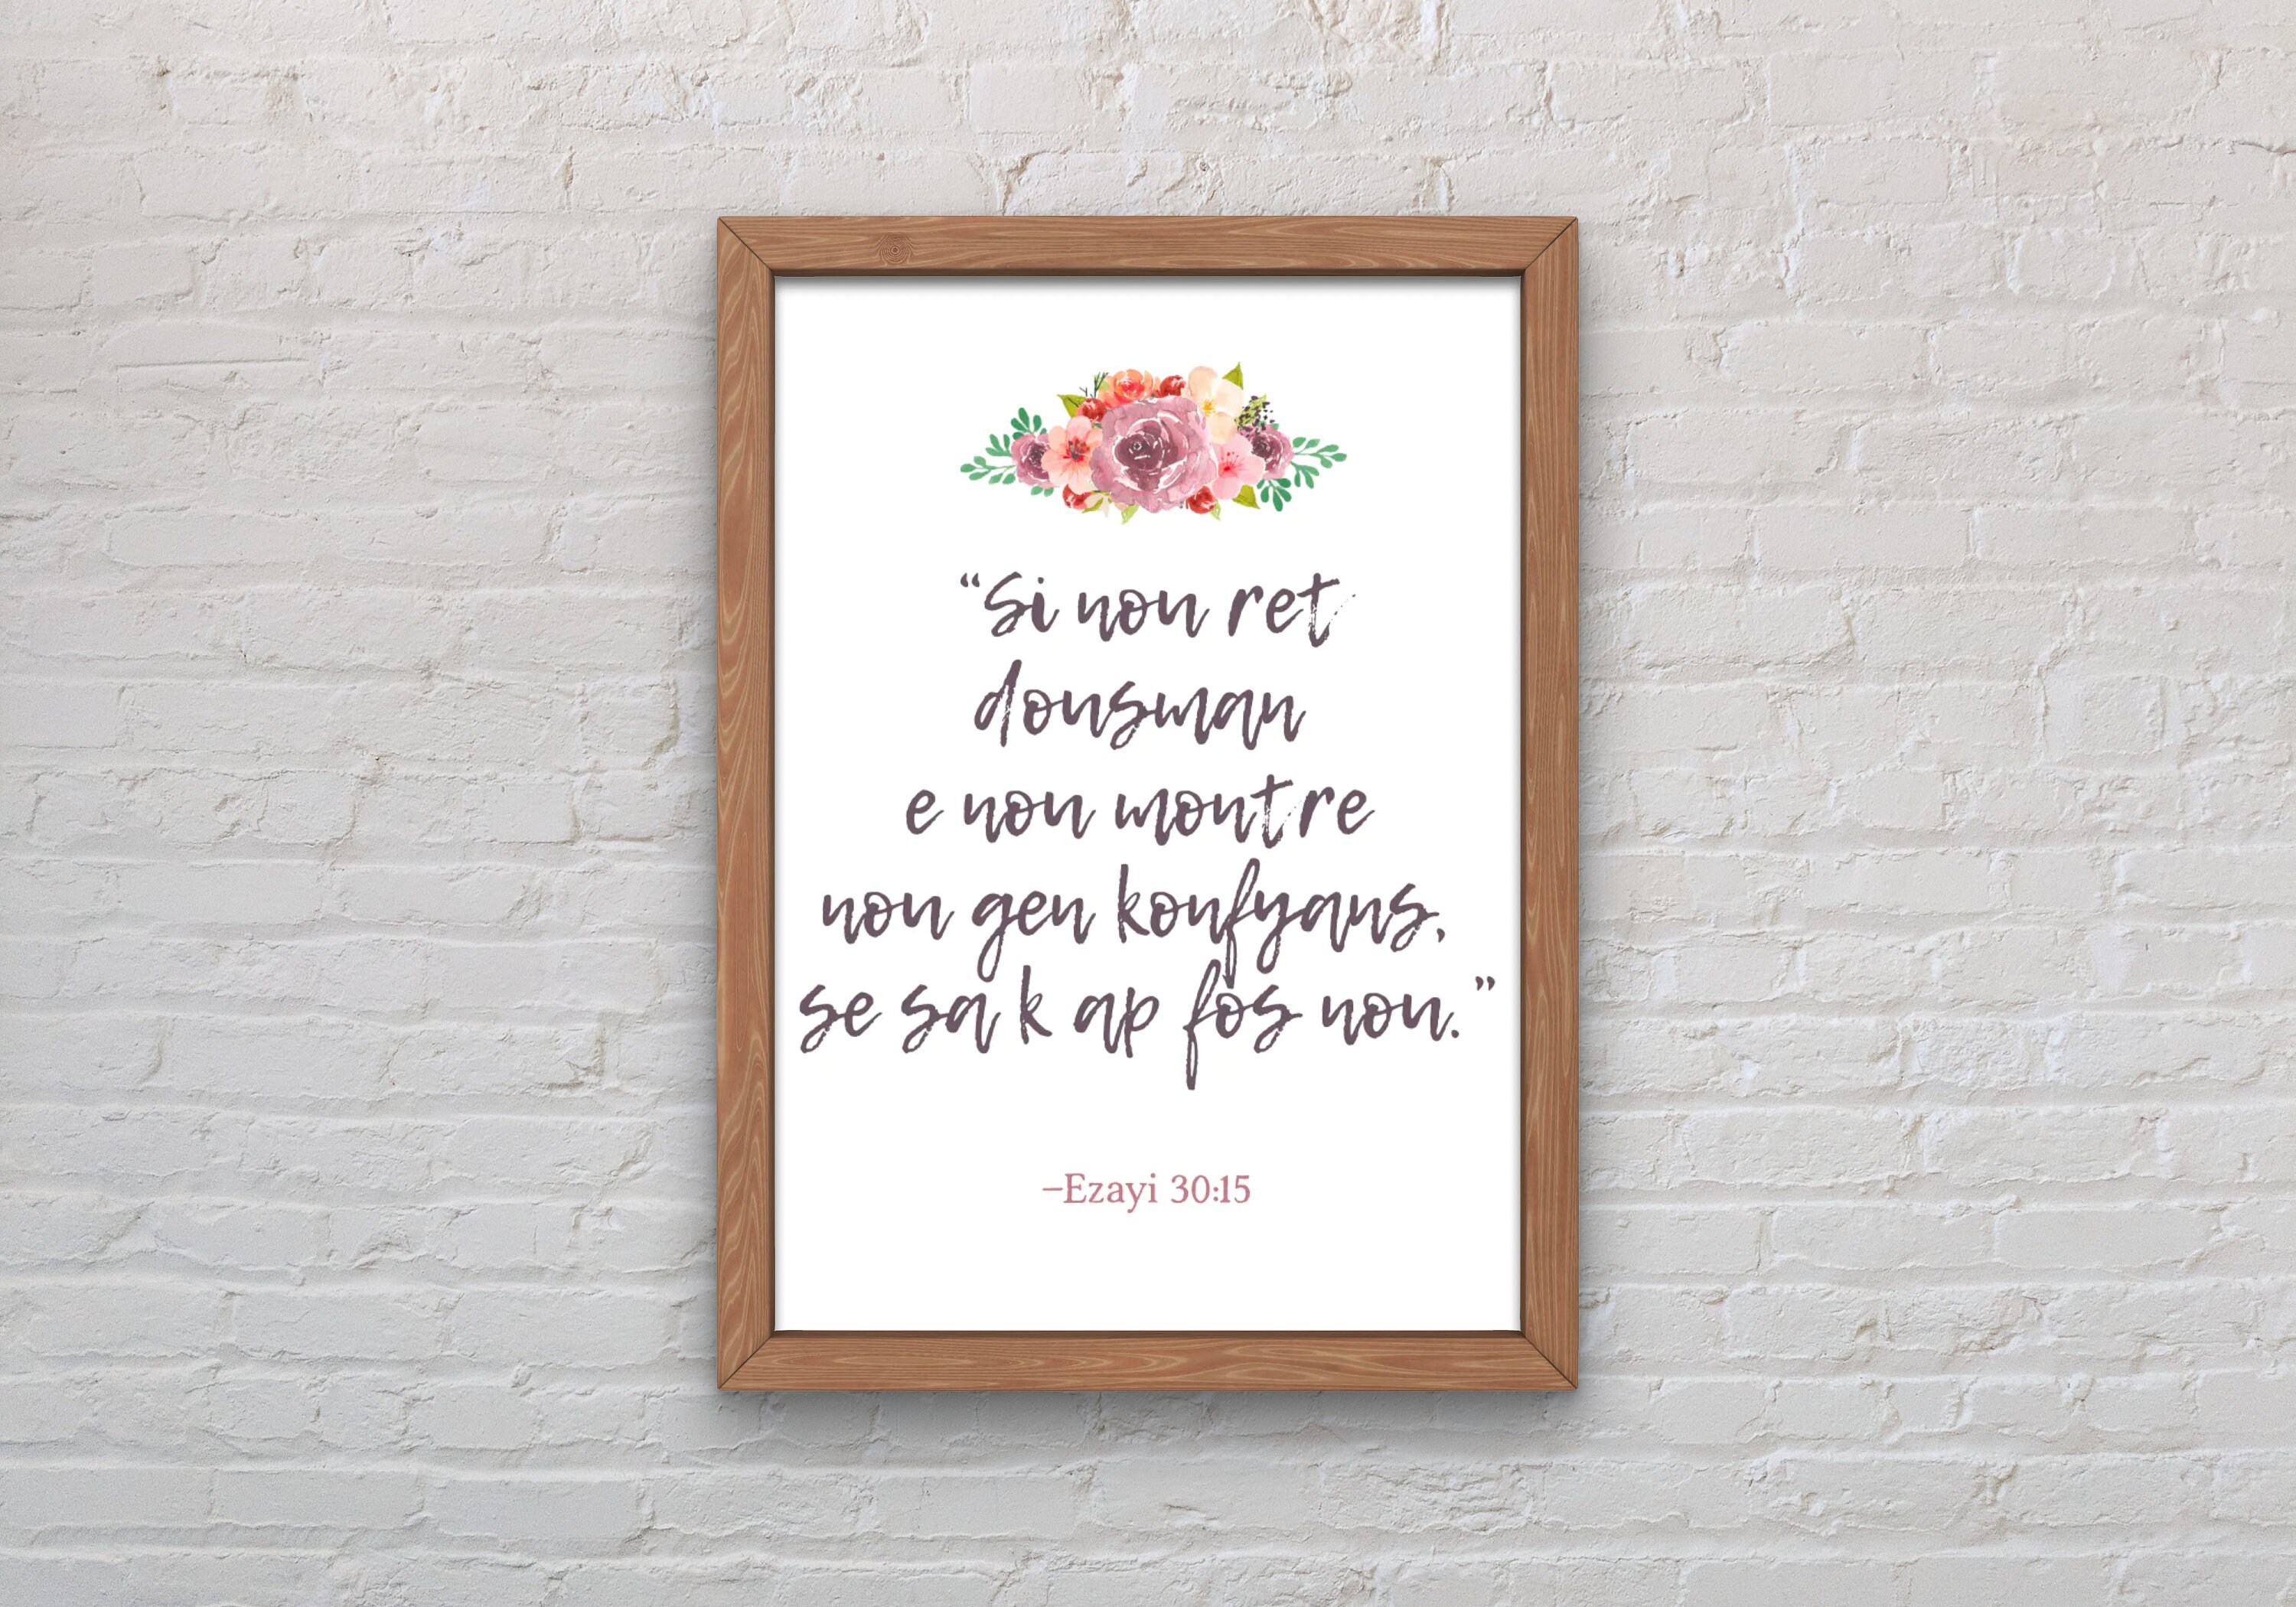 “Si nou ret
dousman
e nou montre
nou gen konfyans,
se sa k ap fos nou.”
–Ezayi 30:15